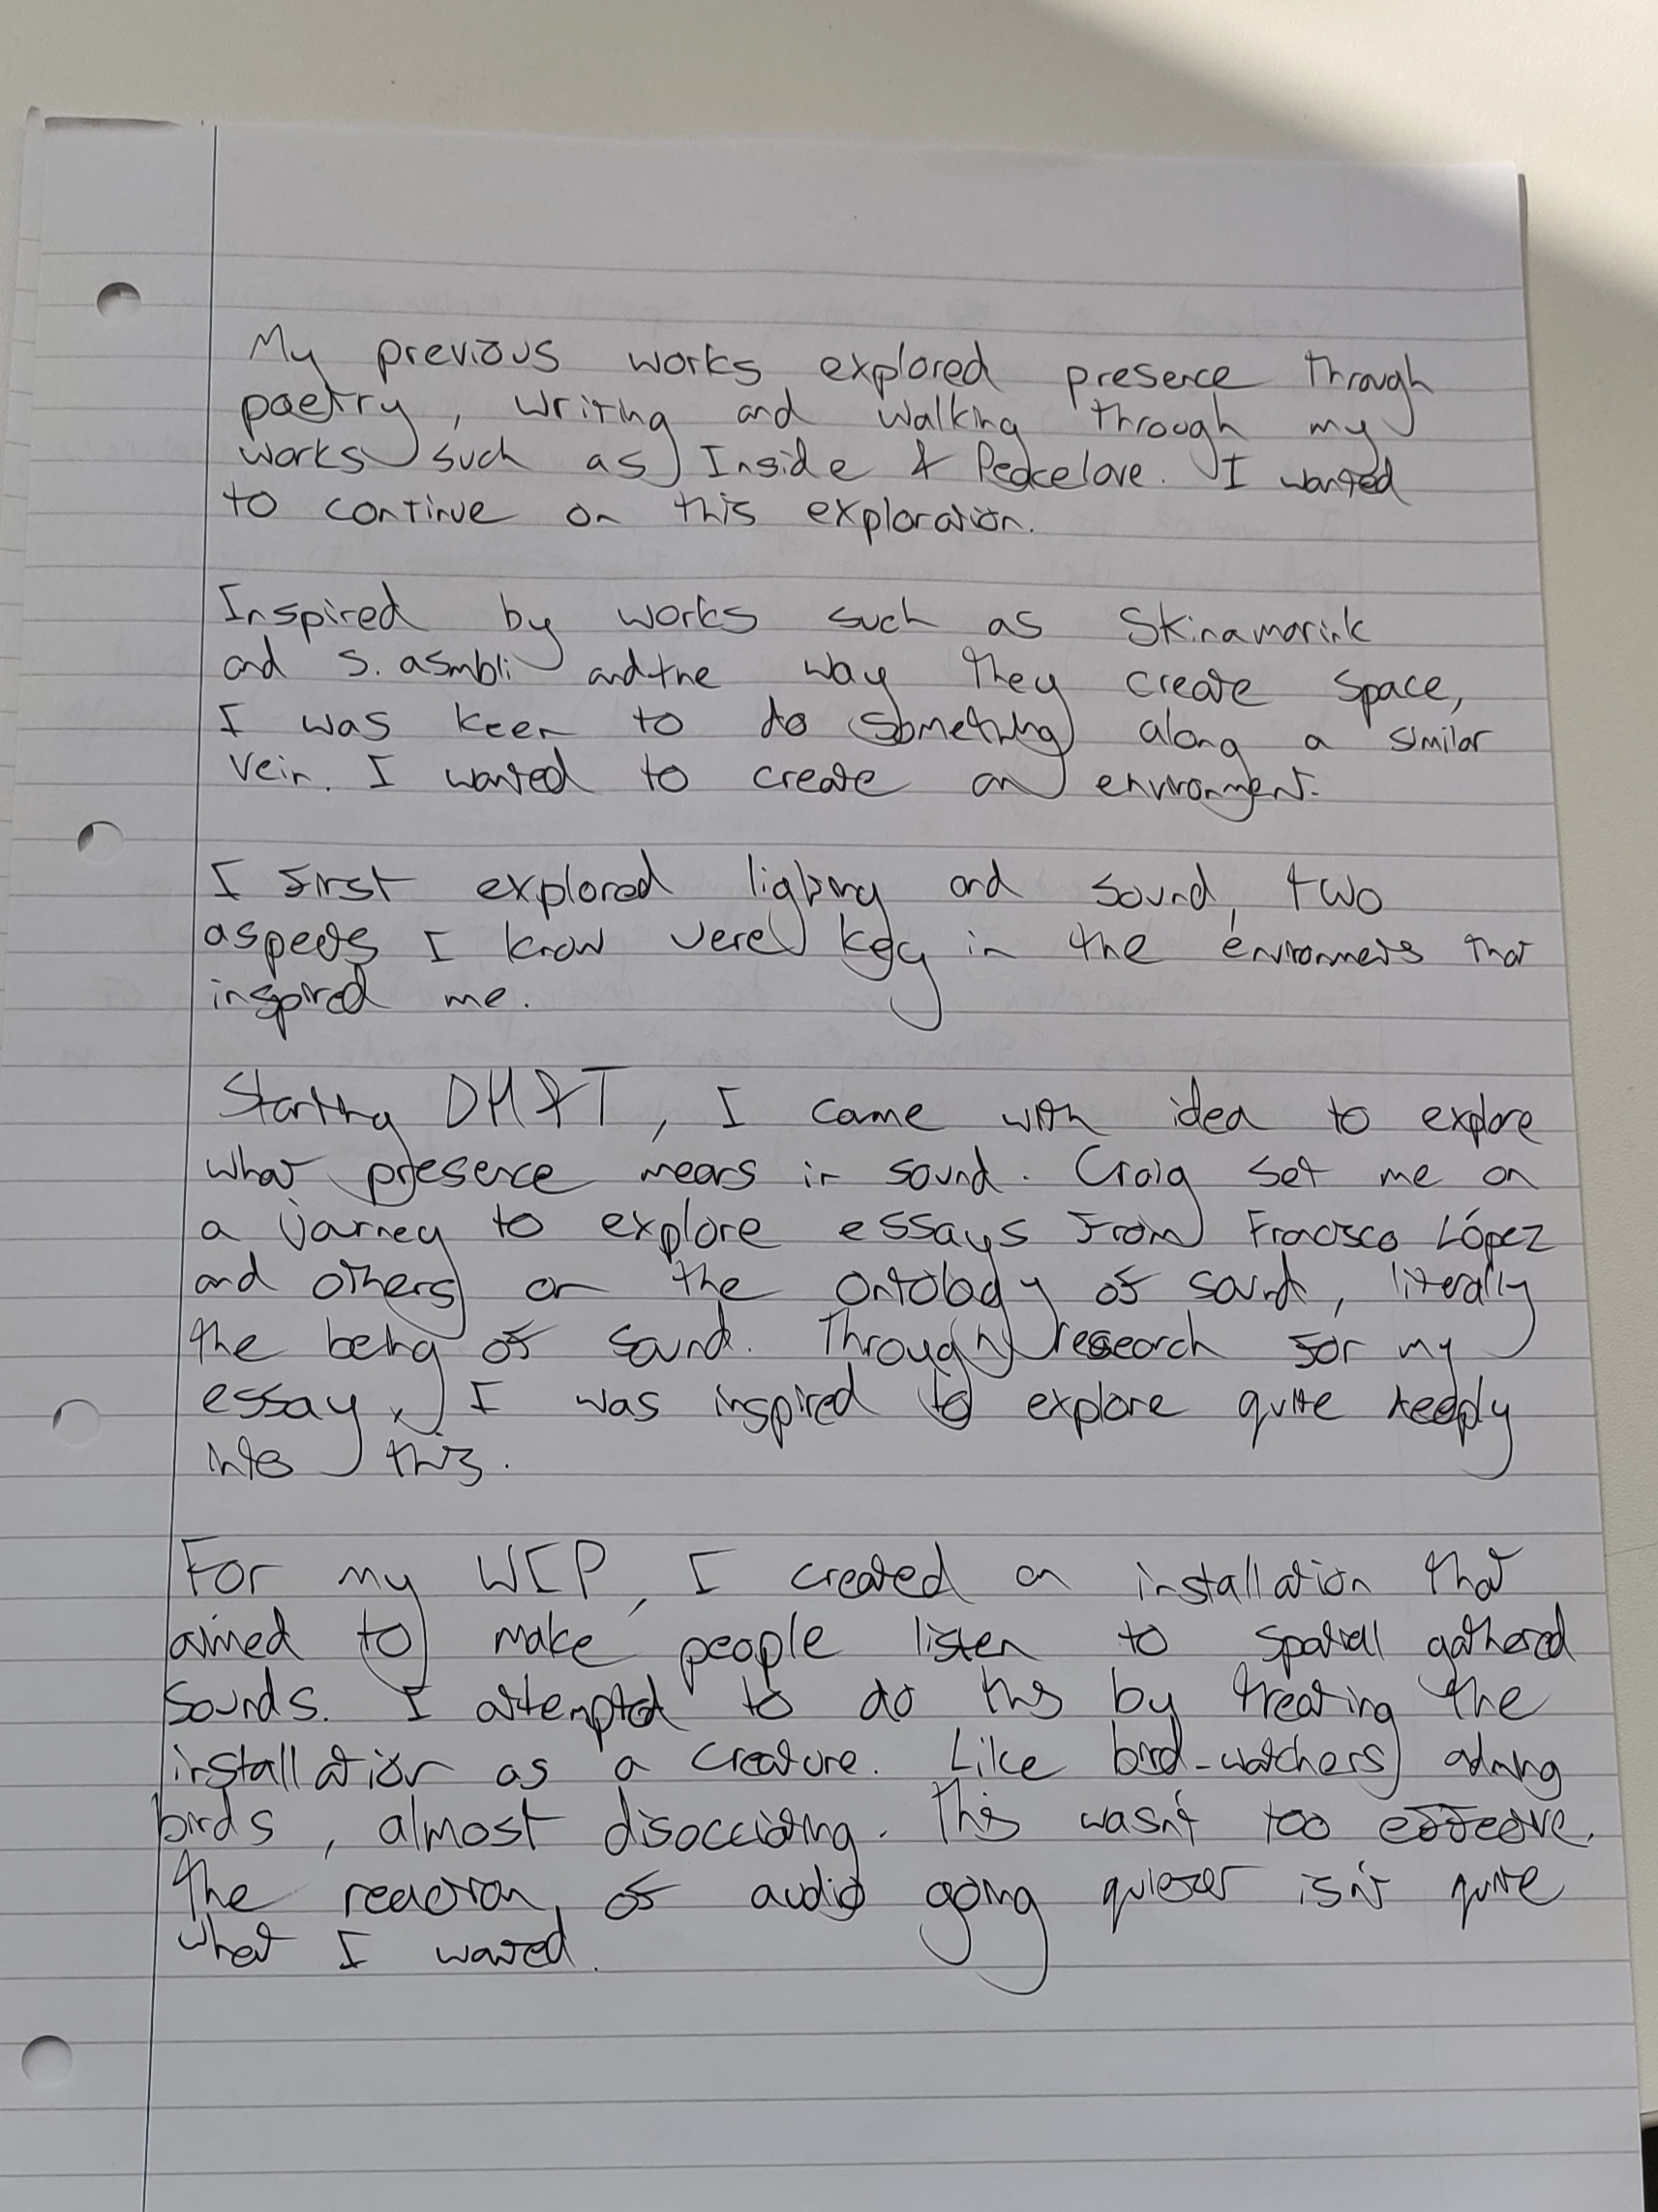 My previous works explored presence through
poetry, writing and walking through my
works such as Inside & Peacelove. I wanted
to continue on this exploration.
Inspired by works such as Skinamarink
and s. asmbli and the way they create space,
I was keen to do something along a similar
vein. I wanted to create an environment.
I first explored lighting and sound, two
aspects I know were key in the environments that
inspired me.
Starting DM&T, I came with idea to explore
what presence means in sound. Craig set me on
a journey to explore essays from Francisco López
and others on the ontology of sound, literally
the being of sound. Through research for my
essay, I was inspired to explore quite deeply
into this.
For my WIP, I created an installation that
aimed to make people listen to spatial gathered
sounds. I attempted to do this by treating the
installation as a creature. Like bird-watchers admiring
birds, almost disocciating. This wasn't too effective.
The reaction of audio going quieter isn't quite
what I wanted.